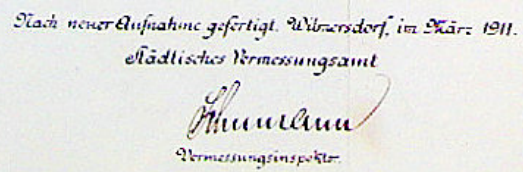 Nach neuer Aufnahme gefertigt. Wilmersdorf, im März 1911.
Städtisches Vermessungsamt
Vermessungsinspektor.